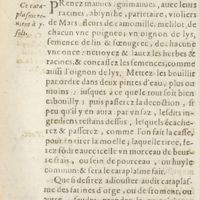 Ce cata-
plasme re-
solut.
PRenez mauues, guimauues, auec leurs
racines, absynthe, paritaire, violiers
de Mars, fleurs de camomille, melilot, de
chacun vne poignee: vn oignon de lys,
semence de lin & fœnugrec, de chacun
vne once: nettoyez & lauez les herbes &
racines, & concassez les semences, comme
aussi l'oignon de lys. Mettez les bouillir
par ordre dans deux pintes d'eau, plus ou
moins: iusques à ce qu'elle soit bien
embouillie, & puis passerez la decoction, si
peu qu'il y en aura par vn sas, lesdits
ingrediens restans, lesquels escacherez
& passerez, comme l'on fait la casse,
pour en tirer la moelle, laquelle tiree, fe-
rez recuire auec vn morceau de beurre
frais, ou sein de pourceau, ou huyle
commun: & sera le cataplasme fait.
Que si desirez adiouster audit cataplas-
me des farines d'orge, ou de froment, ou